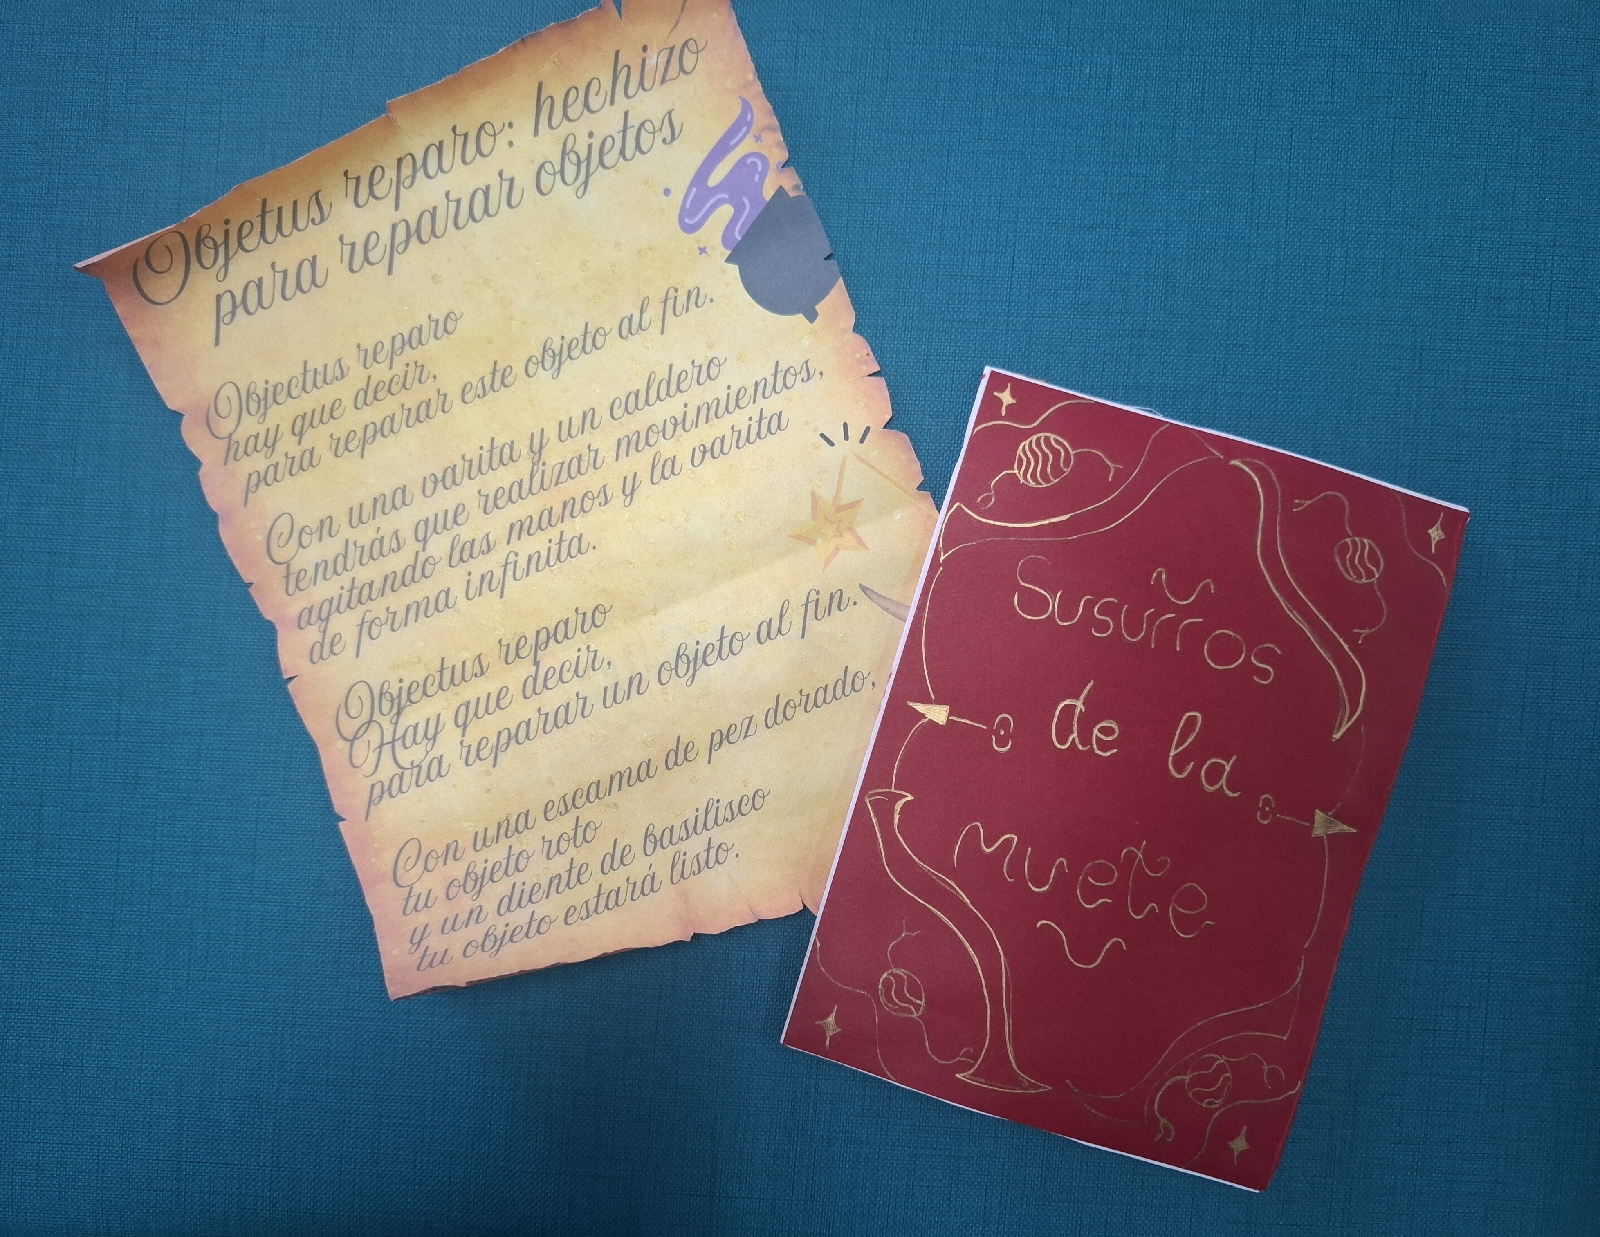 Objetus reparo: hechizo
para reparar objetos
Objectus reparo
hay que decir,
para reparar este objeto al fin.
Con una varita y un caldero
tendrás que realizar movimientos,
agitando las manos y la varita
de forma infinita.
Objectus reparo
Hay que decir,
para reparar un objeto al fin.
Con una escama de pez dorado,
tu objeto roto
y un diente de basilisco
tu objeto estará listo.
Susurros
de la
muete